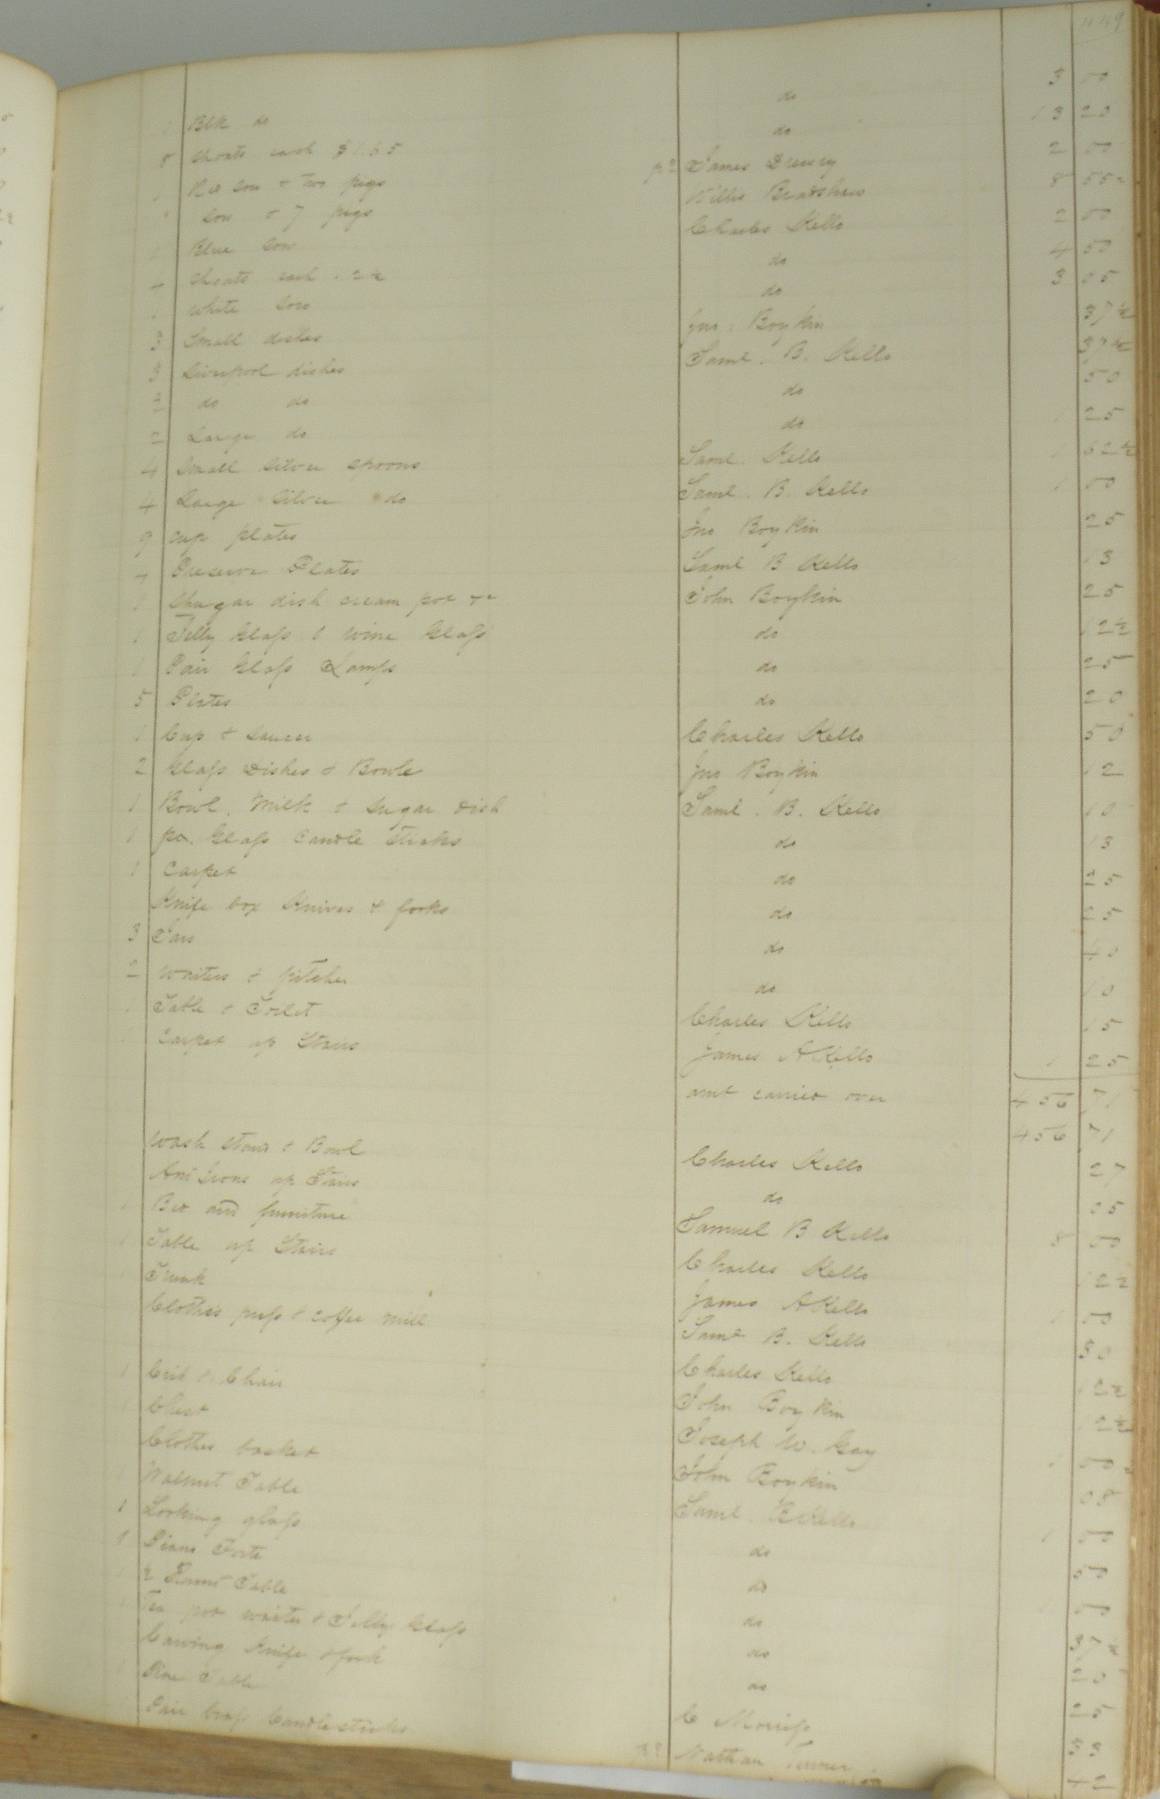 449
1 Blk do do 3 00
8 Shoats each $1.65 do 13 20
1 Red Sow & two pigs pd James Drewry 2 00
1 Sow & 7 pigs Willis Bradshaw 8 55
1 Blue Sow Charles Kello 2 00
Shoats each do 4 50
1 White Sow do 3 05
3 Small dishes Jno. Boykin 37½
3 Liverpool dishes Saml. B. Kello 37½
2 do do do 50
2 Large do do 1 25
4 Small Silver Spoons Saml. Kello 1 62½
4 Large Silver do Saml. B. Kello 1 00
9 Cup plates Jno Boykin 25
Preserve Plates Saml B Kello 13
1 Shugar dish cream pot &c John Boykin 25
1 Jelly Glass & wine Glass do 12½
1 Pair Glass Lamps do 25
5 Plates do 20
1 Cup & Saucer Charles Kello 50
2 Glass Dishes & Bowls Jno Boykin 12
1 Bowl, Milk & Sugar dish Saml. B. Kello 10
1 pr. Glass Candle Sticks do 13
1 Carpet do 25
Knife box Knives & forks do 25
3 Jars do 40
2 Waiters & pitcher do 10
1 Table & Toilet Charles Kello 15
Carpet up Stairs James A Kello 1 25
amt carried over 456 71
456 71
Wash Stand & Bowl Charles Kello 27
And Irons up Stairs do 05
1 Bed and furniture Samuel B Kello 8 00
1 Table up Stairs Charles Kello 12½
Trunk James A Kello 1 00
Clothes press & Coffee mill Saml B. Kello 50
1 Crib & Chair Charles Kello 12½
1 Chest John Boykin 12½
Clothes basket Joseph W. Gay 1 00
Walnut Table John Boykin 08
1 Looking glass Saml. B Kello 1 00
1 Piano Forte do 50
2 Round Table do 1 00
Tea pot waiter & Jelly Glass do 37½
Carving Knife & fork do 20
Pine Table do 25
Pair brass Candlesticks C Morriss 33
Nathan Turner 42